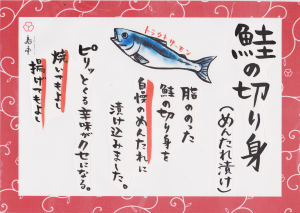 鮭の切り身
(めんたれ漬け)
トラウトサーモン
脂ののった
鮭の切り身を
自慢のめんたれに
漬け込みました。
ピリッとくる辛味がクセになる。
焼いてもよし
揚げてもよし